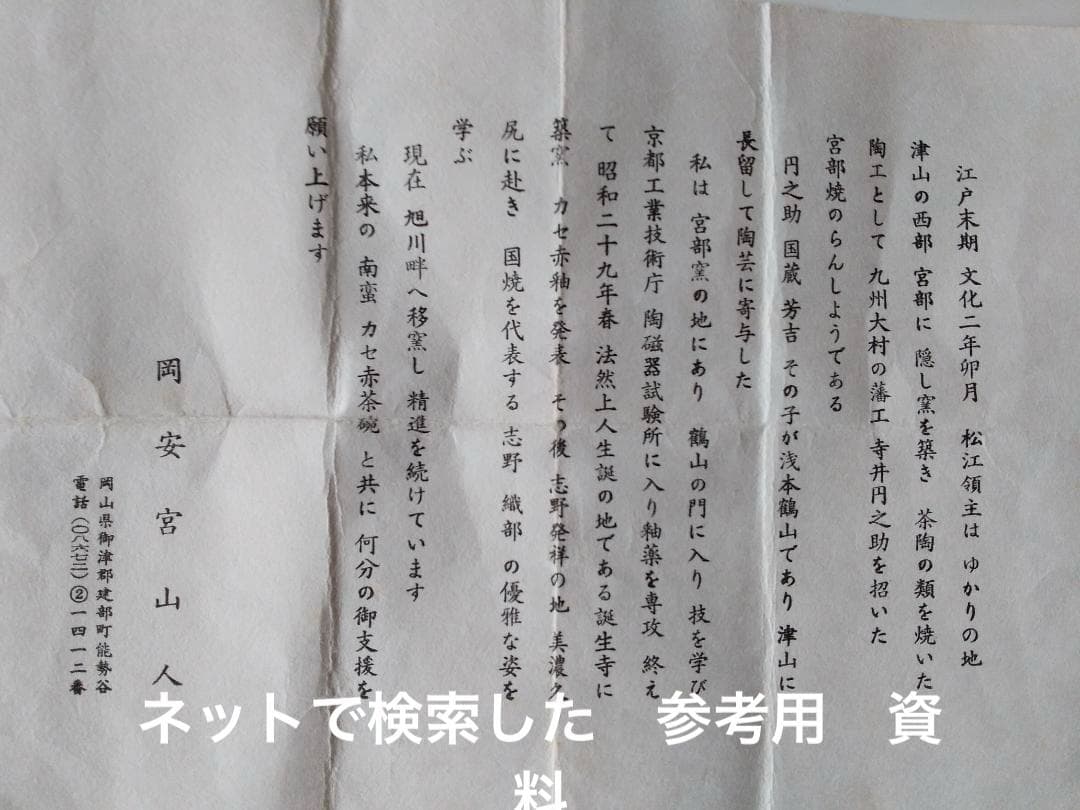 江戸末期 文化二年卯月 松江領主は ゆかりの地
津山の西部 宮部に 隠し窯を築き 茶陶の類を焼いた
陶工として 九州大村の藩工 寺井円之助を招いた
宮部焼のらんしようである
円之助 国蔵 芳吉 その子が浅本鶴山であり 津山に
長留して陶芸に寄与した
私は 宮部窯の地にあり 鶴山の門に入り 技を学び
京都工業技術庁 陶磁器試験所に入り釉薬を専攻 終え
て 昭和二十九年春 法然上人生誕の地である誕生寺に
築窯 カセ赤釉を発表 その後 志野発祥の地 美濃久
尻に赴き 国焼を代表する 志野 織部 の優雅な姿を
学ぶ
現在 旭川畔へ移窯し 精進を続けています
私本来の 南蛮 カセ赤茶碗 と共に 何分の御支援を
願い上げます
岡安宮山人
岡山県御津郡建部町能勢谷
電話(〇八六七二)②一四一二番
ネットで検索した 参考用 資
料